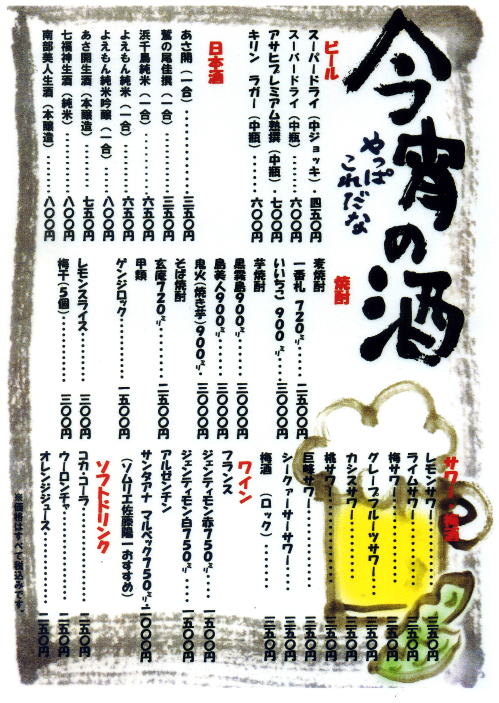 今宵の酒
やっぱ
これだな
ビール
スーパードライ（中ジョッキ）・四五〇円
スーパードライ（中瓶）……六〇〇円
アサヒプレミアム熟撰（中瓶）・七〇〇円
キリン ラガー（中瓶）……六〇〇円
日本酒
あさ開（一合）…………三五〇円
鷲の尾佳撰（一合）…………三五〇円
浜千鳥純米（一合）…………六五〇円
よえもん純米（一合）…………六五〇円
よえもん純米吟醸（一合）……八〇〇円
あさ開生酒（本醸造）………七五〇円
七福神生酒（純米）…………八〇〇円
南部美人生酒（本醸造）……八〇〇円
焼酎
麦焼酎
一番札 720㍉……二五〇〇円
いいちこ 900㍉……三〇〇〇円
芋焼酎
黒霧島900㍉……三〇〇〇円
島美人900㍉……三〇〇〇円
鬼火（焼き芋）900㍉・三〇〇〇円
そば焼酎
玄庵720㍉……二五〇〇円
甲類
ゲンジロック…………一五〇〇円
レモンスライス…………三〇〇円
梅干（5個）…………三〇〇円
サワー・梅酒
レモンサワー……三五〇円
ライムサワー……三五〇円
梅サワー……三五〇円
グレープフルーツサワー…三五〇円
カシスサワー……三五〇円
桃サワー……三五〇円
巨峰サワー……三五〇円
シークァーサーサワー……三五〇円
梅酒 （ロック）……三五〇円
ワイン
フランス
ジェンティモン赤750㍉……一五〇〇円
ジェンティモン白750㍉……一五〇〇円
アルゼンチン
サンタアナ マルベック750㍉二〇〇〇円
（ソムリエ佐藤陽一おすすめ）
ソフトドリンク
コカ・コーラ…………二五〇円
ウーロンチャ…………二五〇円
オレンジジュース…………二五〇円
※価格はすべて税込みです。